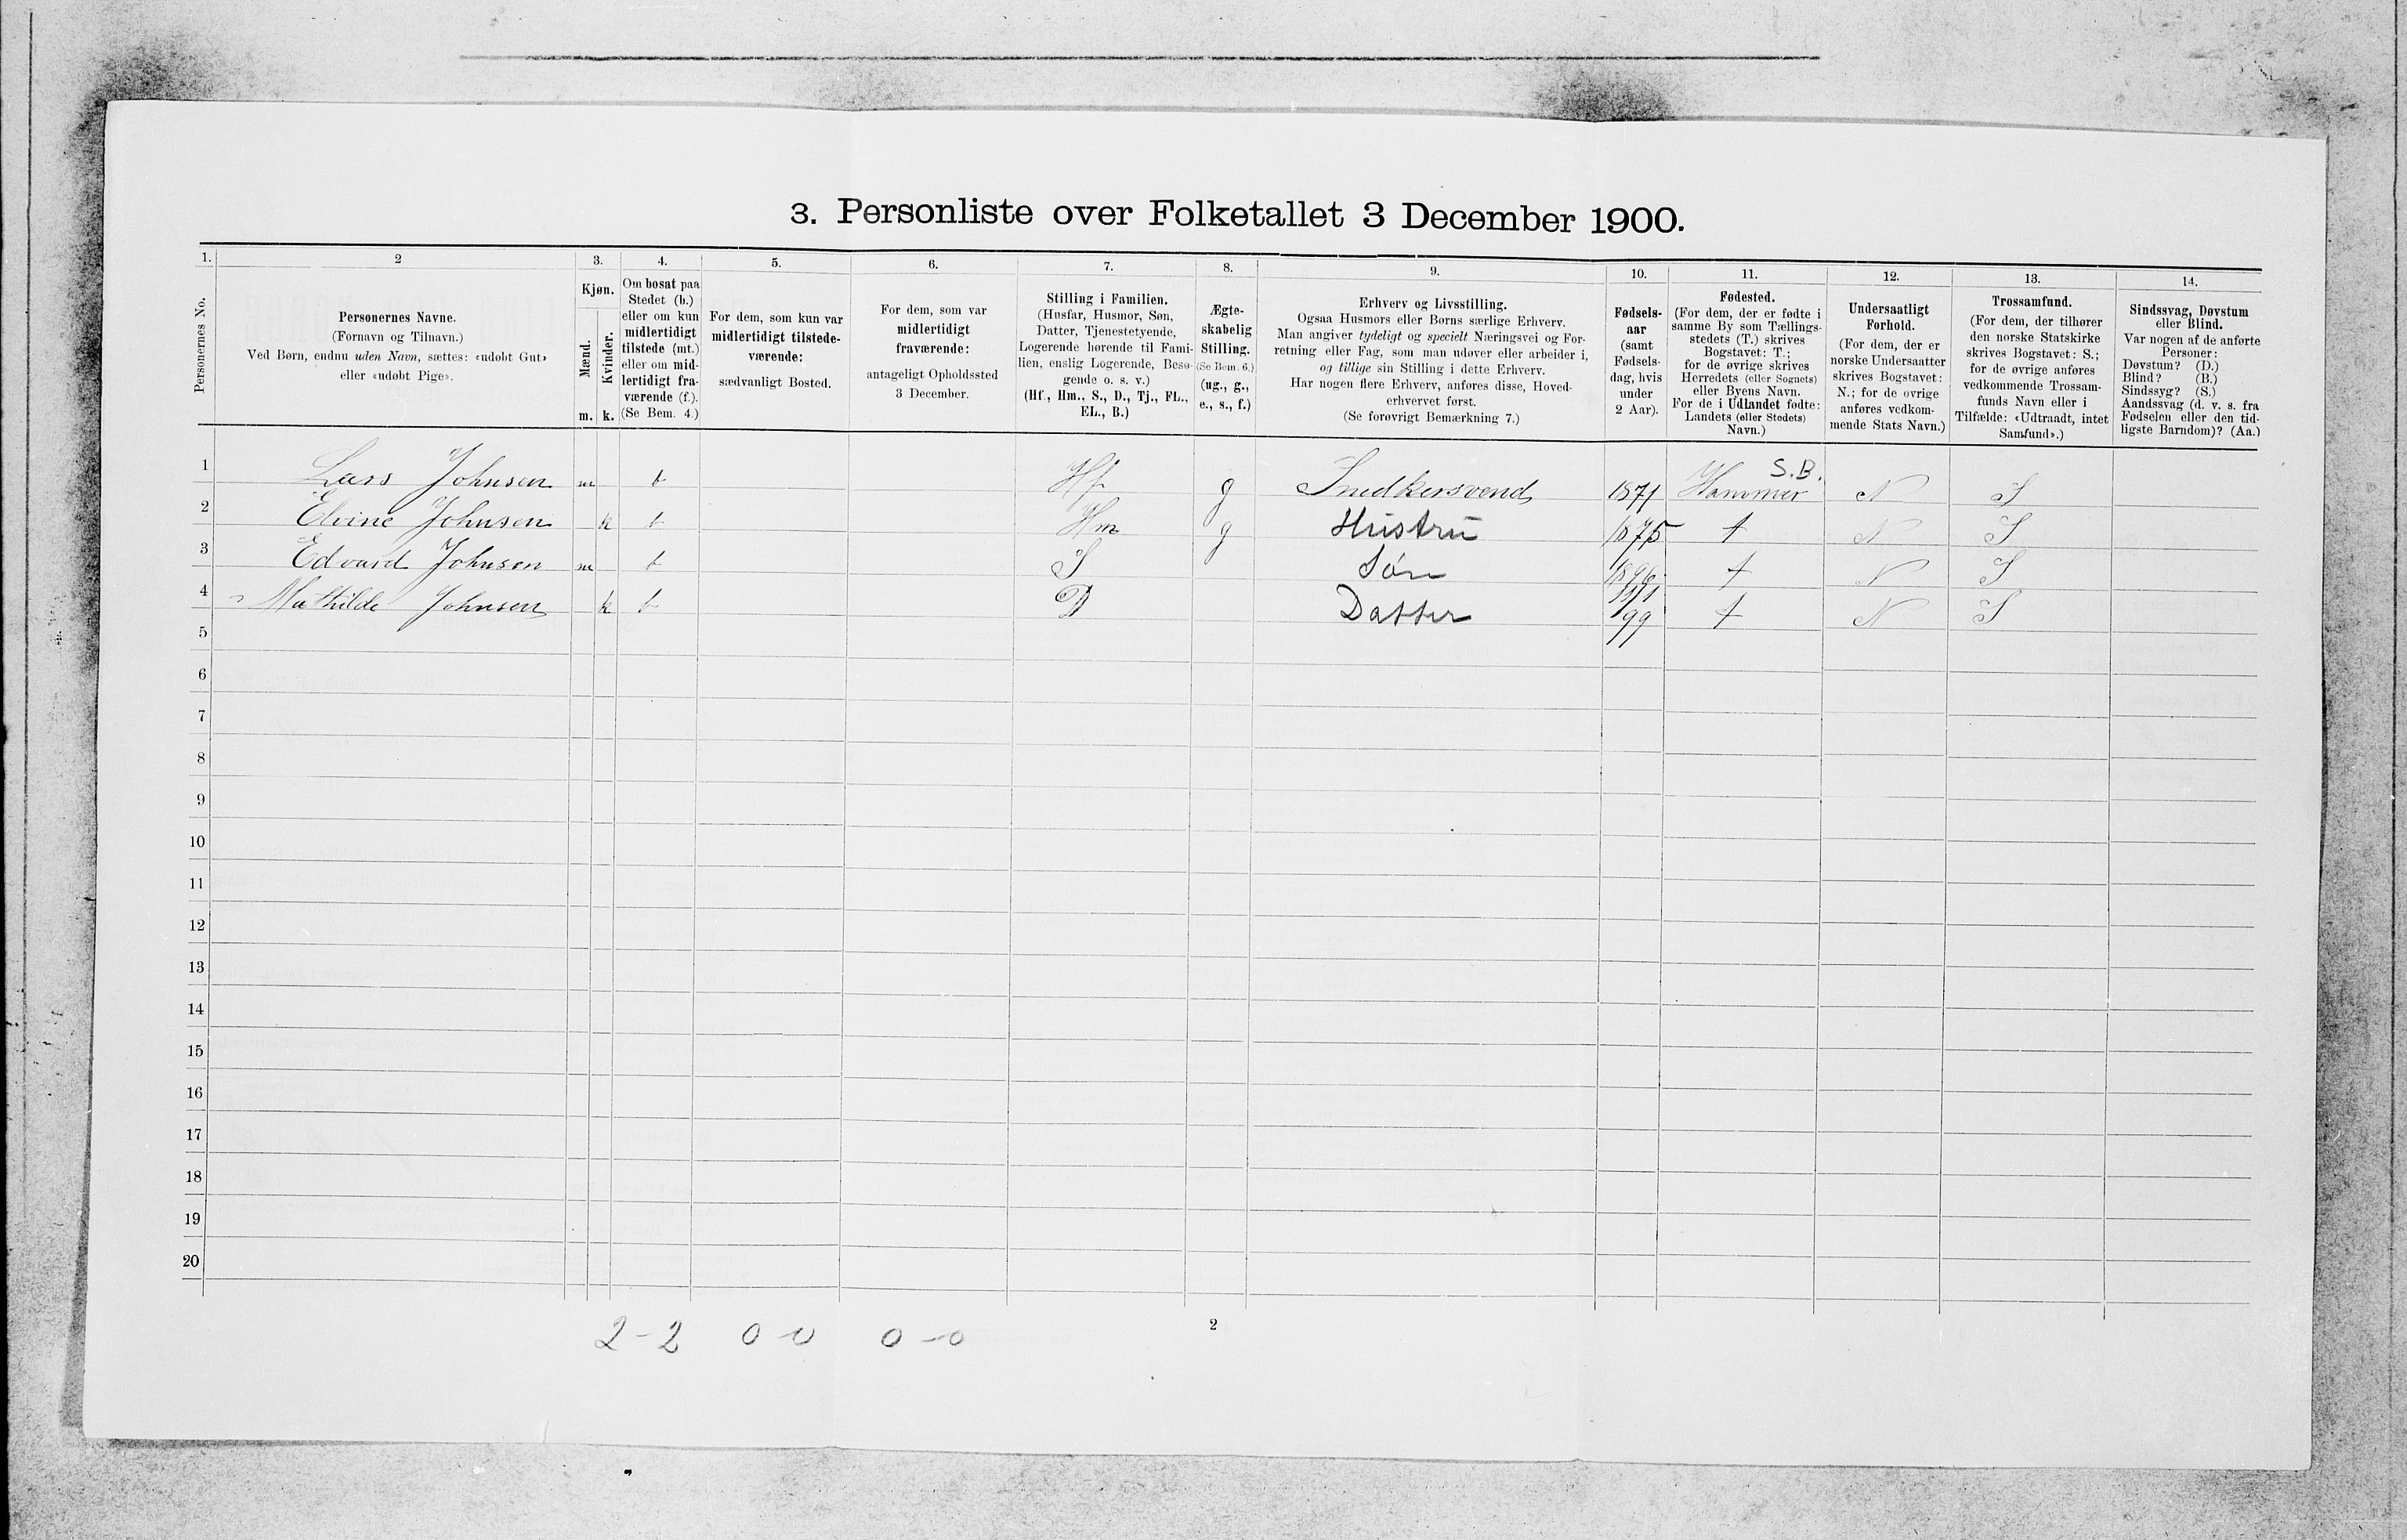 3. Personliste over Folketallet 3 December 1900.
1. 2 3. 4. 5. 6. 7. 8. 9. 10. 11. 12. 13. 14.
Personernes No.
Personernes Navne.
(Fornavn og Tilnavn.)
Ved Børn, endnu uden Navn, sættes: «udøbt Gut»
eller «udøbt Pige».
Kjøn.
Mænd.
Kvinder.
m. k.
Om bosat paa
Stedet (b.)
eller om kun
midlertidigt
tilstede (mt.)
eller om mid-
lertidigt fra-
værende (f.).
(Se Bem. 4.)
For dem, som kun var
midlertidigt tilstede-
værende:
sædvanligt Bosted.
For dem, som var
midlertidigt
fraværende:
antageligt Opholdssted
3 December.
Stilling i Familien.
(Husfar, Husmor, Søn,
Datter, Tjenestetyende,
Logerende hørende til Fami-
lien, enslig Logerende, Besø-
gende o. s. v.)
(Hf., Hm., S., D., Tj., FL.,
EL., B.)
Ægte-
skabelig
Stilling.
(Se Bem. 6.)
(ug., g.,
e., s., f.)
Erhverv og Livsstilling.
Ogsaa Husmors eller Børns særlige Erhverv.
Man angiver tydeligt og specielt Næringsvei og For-
retning eller Fag, som man udøver eller arbeider i,
og tillige sin Stilling i dette Erhverv.
Har nogen flere Erhverv, anføres disse, Hoved-
erhvervet først.
(Se forøvrigt Bemærkning 7.)
Fødsels-
aar
(samt
Fødsels-
dag, hvis
under
2 Aar).
Fødested.
(For dem, der er fødte i
samme By som Tællings-
stedets (T.) skrives
Bogstavet: T.;
for de øvrige skrives
Herredets (eller Sognets)
eller Byens Navn.
For de i Udlandet fødte:
Landets (eller Stedets)
Navn.)
Undersaatligt
Forhold.
(For dem, der er
norske Undersaatter
skrives Bogstavet:
N.; for de øvrige
anføres vedkom-
mende Stats Navn.)
Trossamfund.
(For dem, der tilhører
den norske Statskirke
skrives Bogstavet: S.;
for de øvrige anføres
vedkommende Trossam-
funds Navn eller i
Tilfælde: «Udtraadt, intet
Samfund».)
Sindssvag, Døvstum
eller Blind.
Var nogen af de anførte
Personer:
Døvstum? (D.)
Blind? (B.)
Sindssyg? (S.)
Aandssvag (d. v. s. fra
Fødselen eller den tid-
ligste Barndom)? (Aa.)
S.B.
1 Lars Johnsen m b Hf g Snedkersvend 1871 Hammer N S
2 Elvine Johnsen k b Hm g Hustru 1875 t N S
3 Edvard Johnsen m b S Søn t N S
4 Mathilde Johnsen k b D Datter 99 t N S
5
6
7
8
9
10
11
12
13
14
15
16
17
18
19
20
2-2 0 0 0-0
2